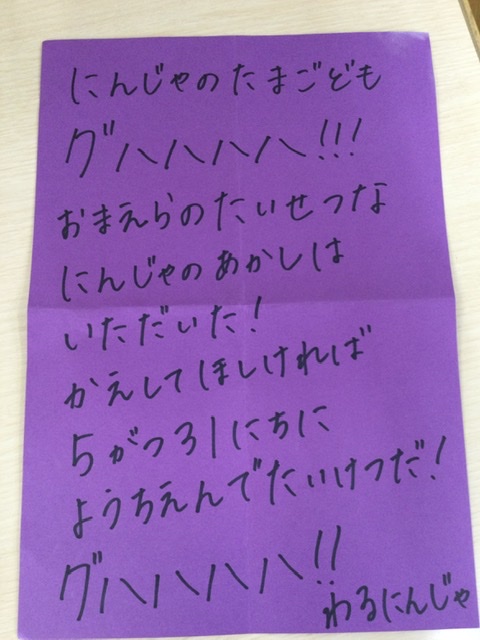 にんじゃのたまごども
グハハハハ!!!
おまえらのたいせつな
にんじゃのあかしは
いただいた!
かえしてほしければ
5がつ31にちに
ようちえんでたいけつだ!
グハハハハ!!
わるにんじゃ